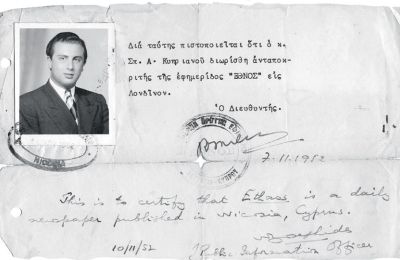 Διά ταύτης πιστοποιεῖται ὅτι ὁ κ.
Σπ. Α. Κυπριανοῦ διωρίσθη ἀνταπο-
κριτής τῆς ἐφημερίδος "ΕΘΝΟΣ" εἰς
Λονδῖνον.
Ὁ Διευθυντής.
7.11.1952
This is to certify that Ethnos is a daily
newspaper published in Nicosia, Cyprus.
10/11/52
Public Information Officer